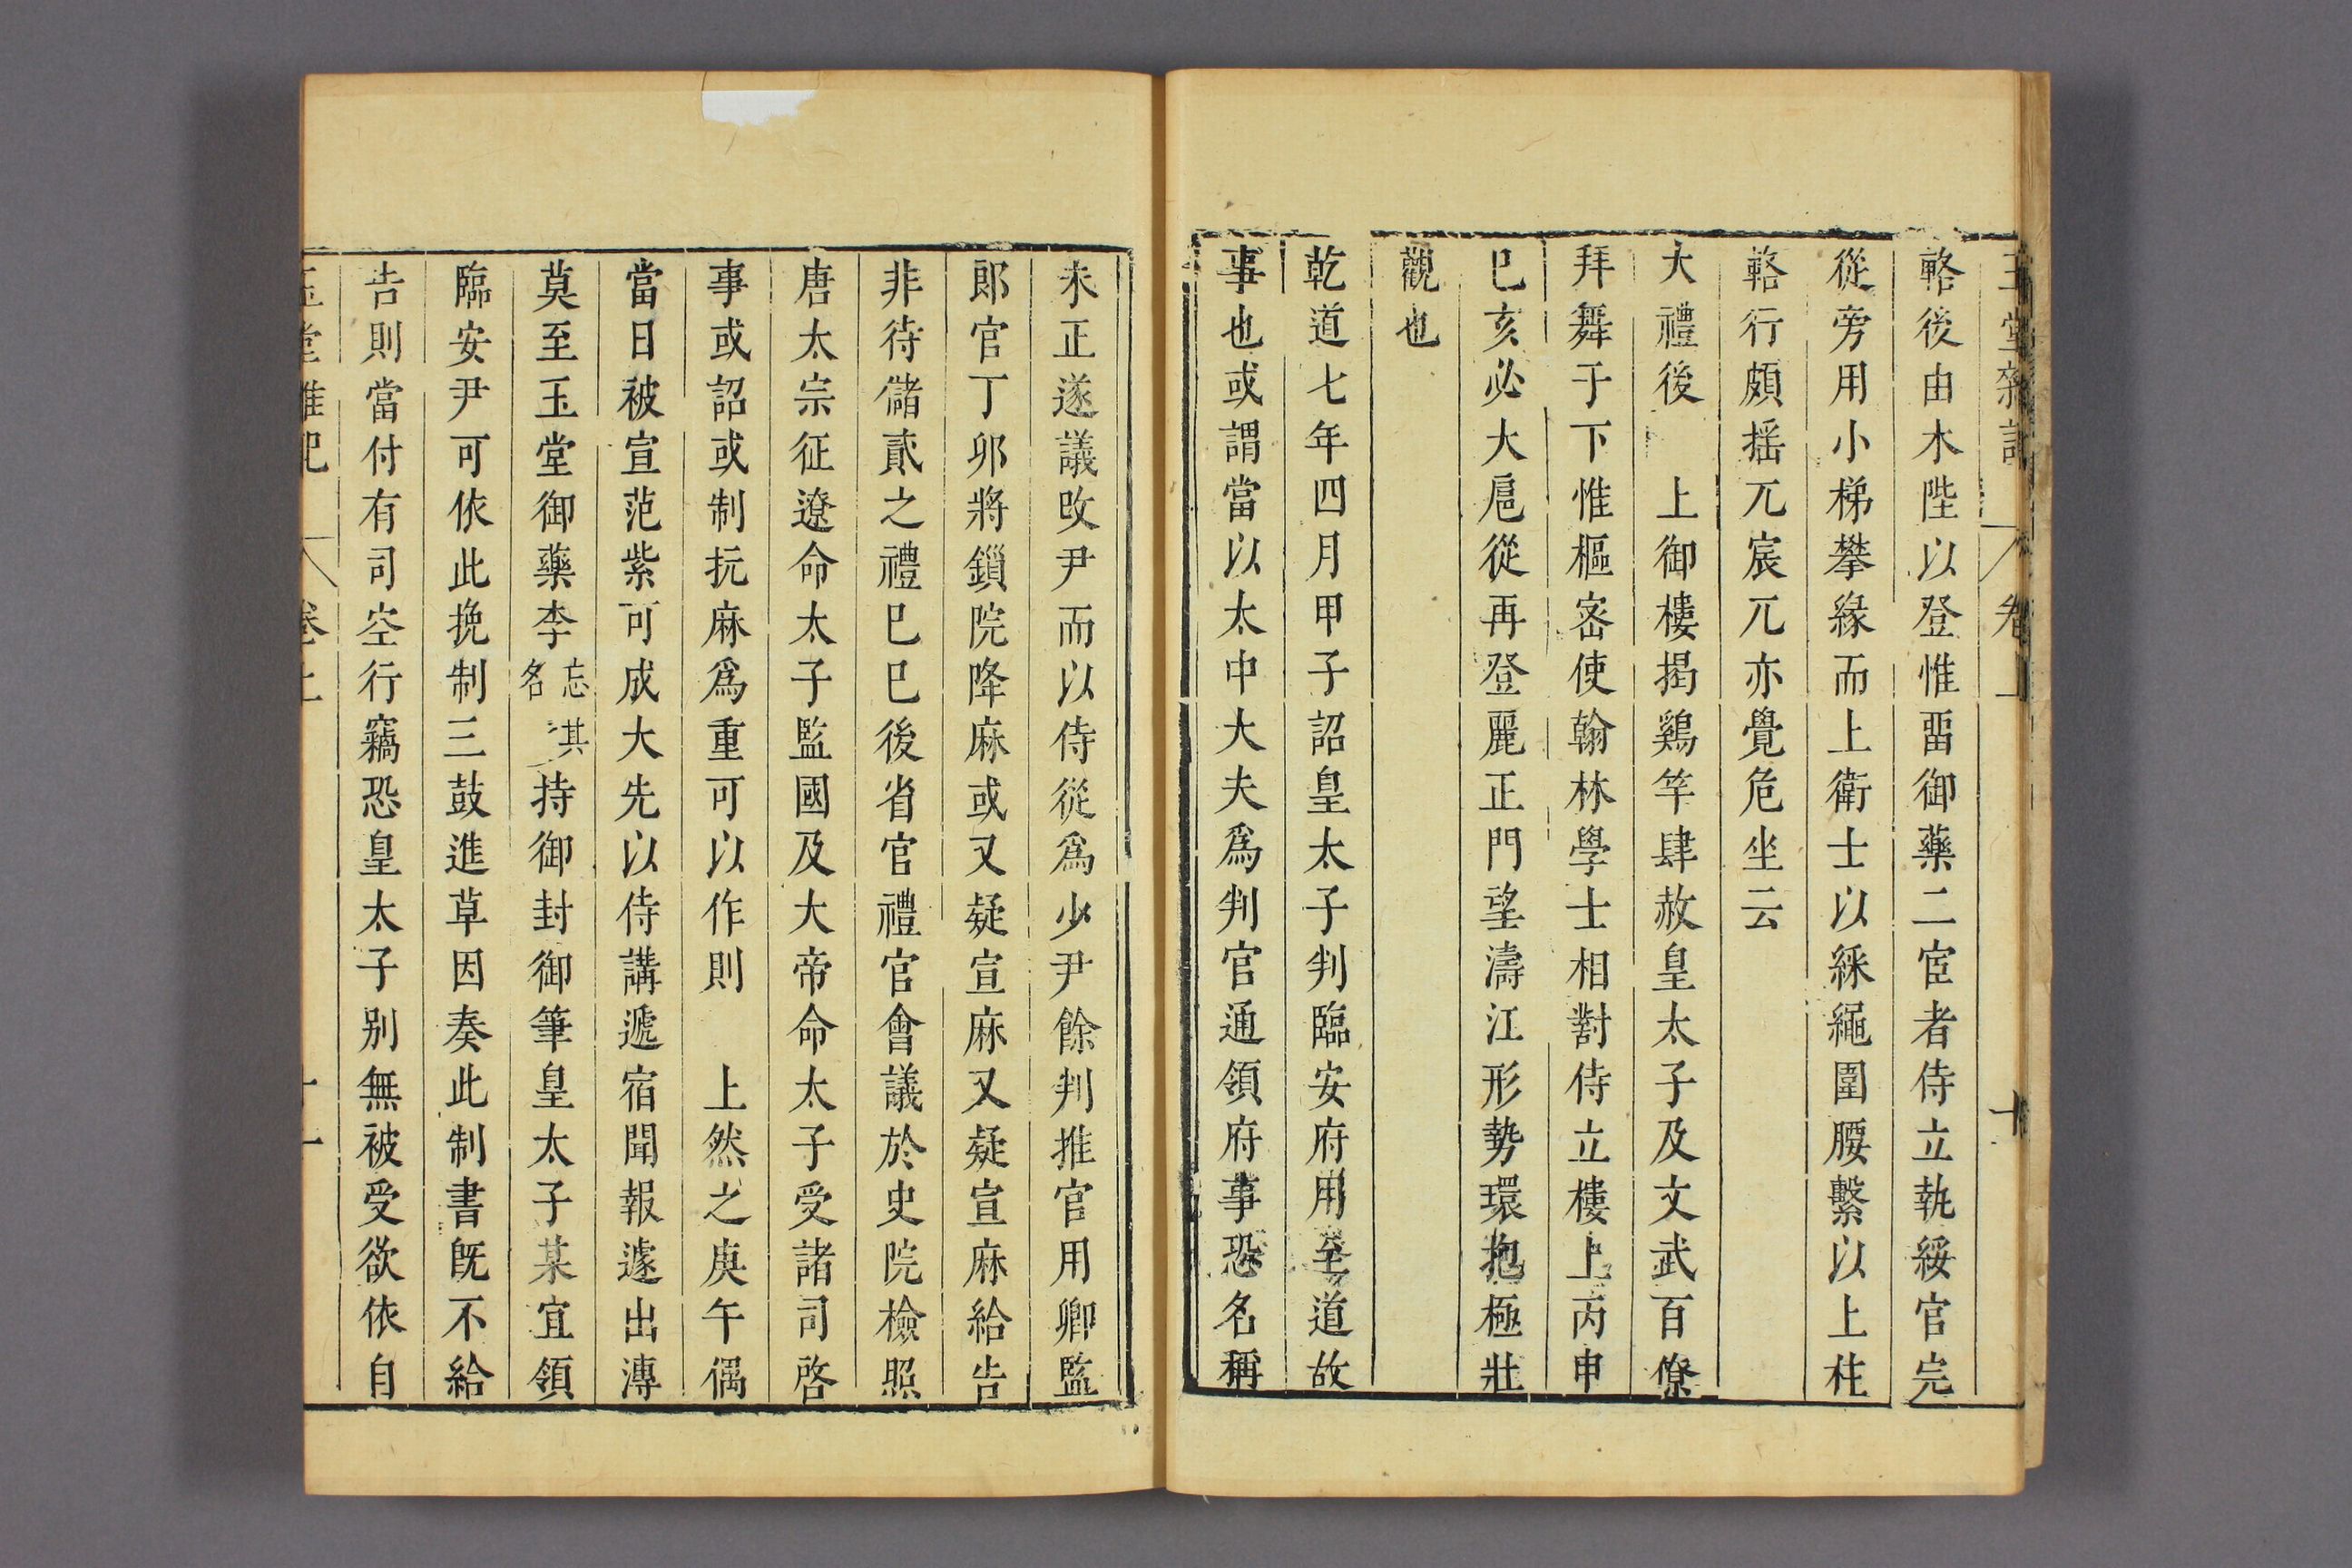 玉堂雜記 卷上 十
輅後由木陛以登惟畱御藥二宦者侍立執綏官完
從旁用小梯攀緣而上衛士以綵繩圍腰繫以上柱
輅行頗揺兀宸兀亦覺危坐云
大禮後 上御樓揭鷄竿肆赦皇太子及文武百僚
拜舞于下惟樞密使翰林學士相對侍立樓上丙申
巳亥必大扈從再登麗正門望濤江形勢環抱極壯
觀也
乾道七年四月甲子詔皇太子判臨安府用至道故
事也或謂當以太中大夫爲判官通領府事恐名稱
未正遂議攺尹而以侍從爲少尹餘判推官用卿監
郎官丁卯將鎻院降麻或又疑宣麻又疑宣麻給告
非待儲貳之禮巳巳後省官禮官會議於史院檢照
唐太宗征遼命太子監國及大帝命太子受諸司啓
事或詔或制抏麻爲重可以作則 上然之庚午偶
當日被宣范紫可成大先以侍講遞宿聞報遽出漙
莫至玉堂御藥李忘其名持御封御筆皇太子某宜領
臨安尹可依此挽制三鼓進草因奏此制書旣不給
告則當付有司空行竊恐皇太子别無被受欲依自
玉堂雜記 卷上 十一